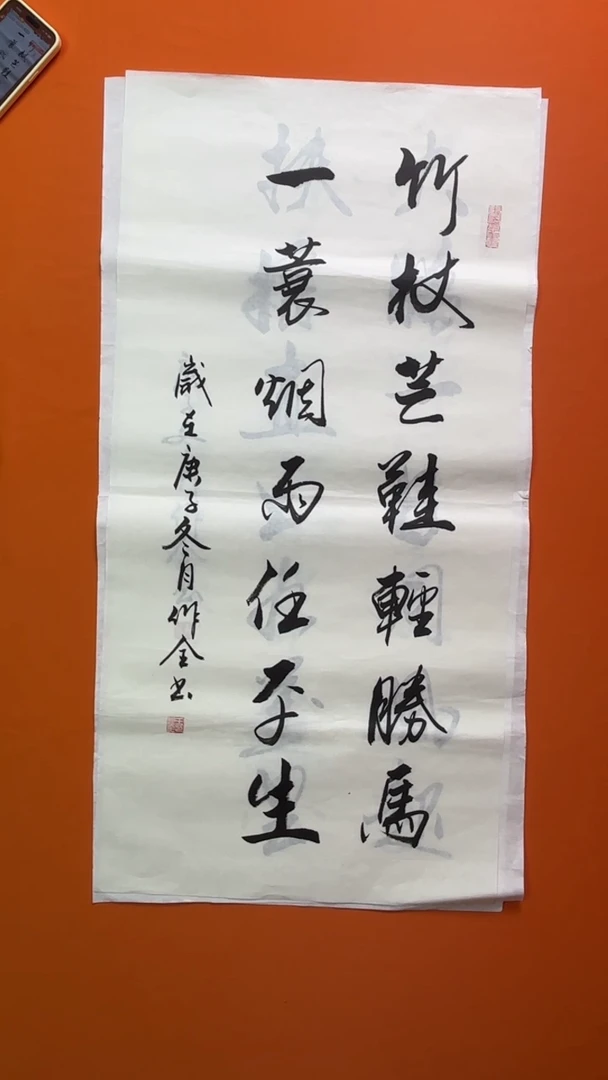 竹杖芒鞋輕勝馬
一蓑烟雨任平生
歲在庚子冬月作全书